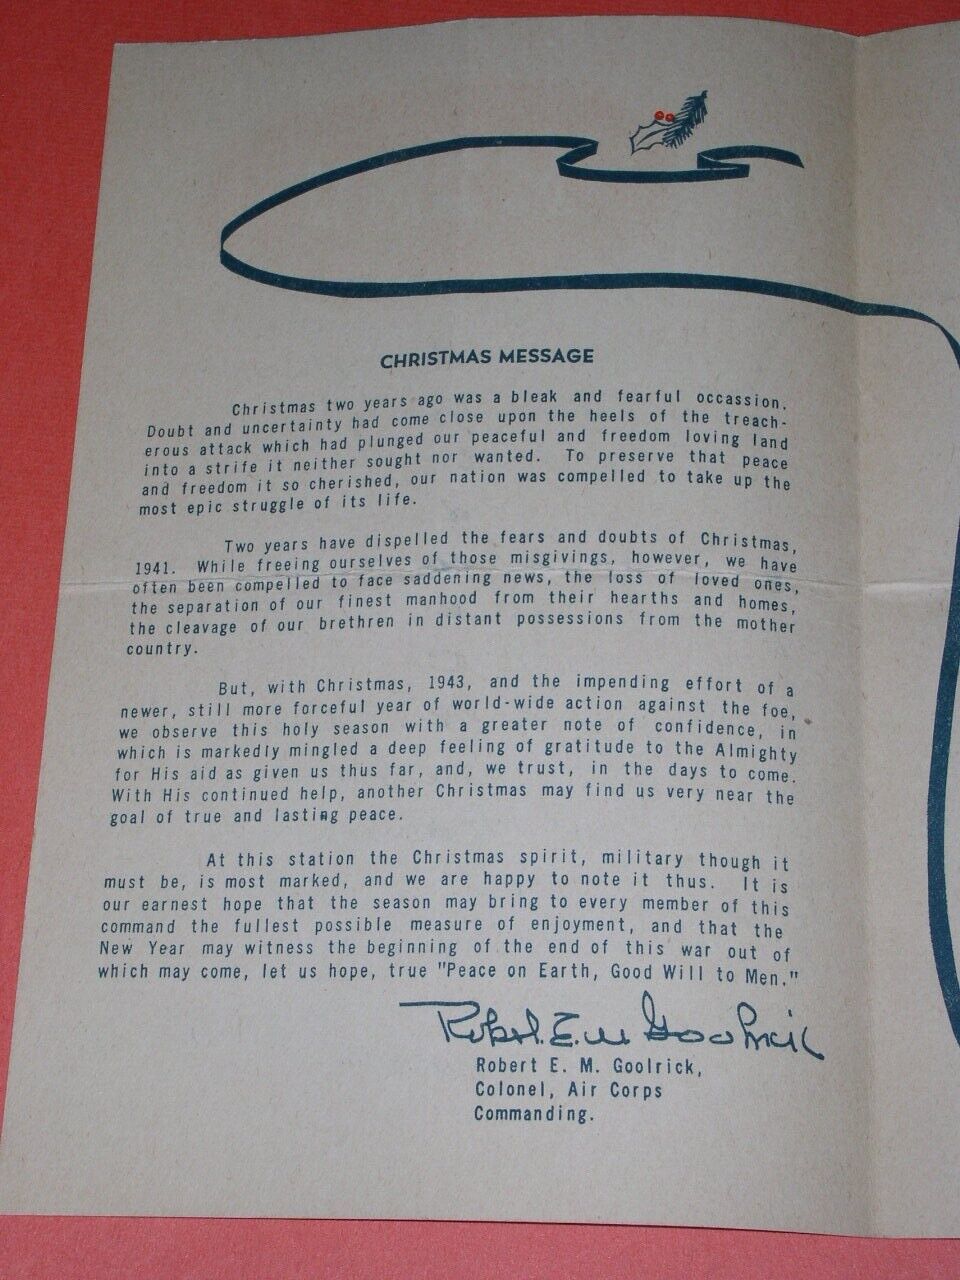 CHRISTMAS MESSAGE
Christmas two years ago was a bleak and fearful occassion.
Doubt and uncertainty had come close upon the heels of the treach-
erous attack which had plunged our peaceful and freedom loving land
into a strife it neither sought nor wanted. To preserve that peace
and freedom it so cherished, our nation was compelled to take up the
most epic struggle of its life.
Two years have dispelled the fears and doubts of Christmas,
1941. While freeing ourselves of those misgivings, however, we have
often been compelled to face saddening news, the loss of loved ones,
the separation of our finest manhood from their hearths and homes,
the cleavage of our brethren in distant possessions from the mother
country.
But, with Christmas, 1943, and the impending effort of a
newer, still more forceful year of world-wide action against the foe,
we observe this holy season with a greater note of confidence, in
which is markedly mingled a deep feeling of gratitude to the Almighty
for His aid as given us thus far, and, we trust, in the days to come.
With His continued help, another Christmas may find us very near the
goal of true and lasting peace.
At this station the Christmas spirit, military though it
must be, is most marked, and we are happy to note it thus. It is
our earnest hope that the season may bring to every member of this
command the fullest possible measure of enjoyment, and that the
New Year may witness the beginning of the end of this war out of
which may come, let us hope, true "Peace on Earth, Good Will to Men."
Robert E. M. Goolrick
Robert E. M. Goolrick,
Colonel, Air Corps
Commanding.